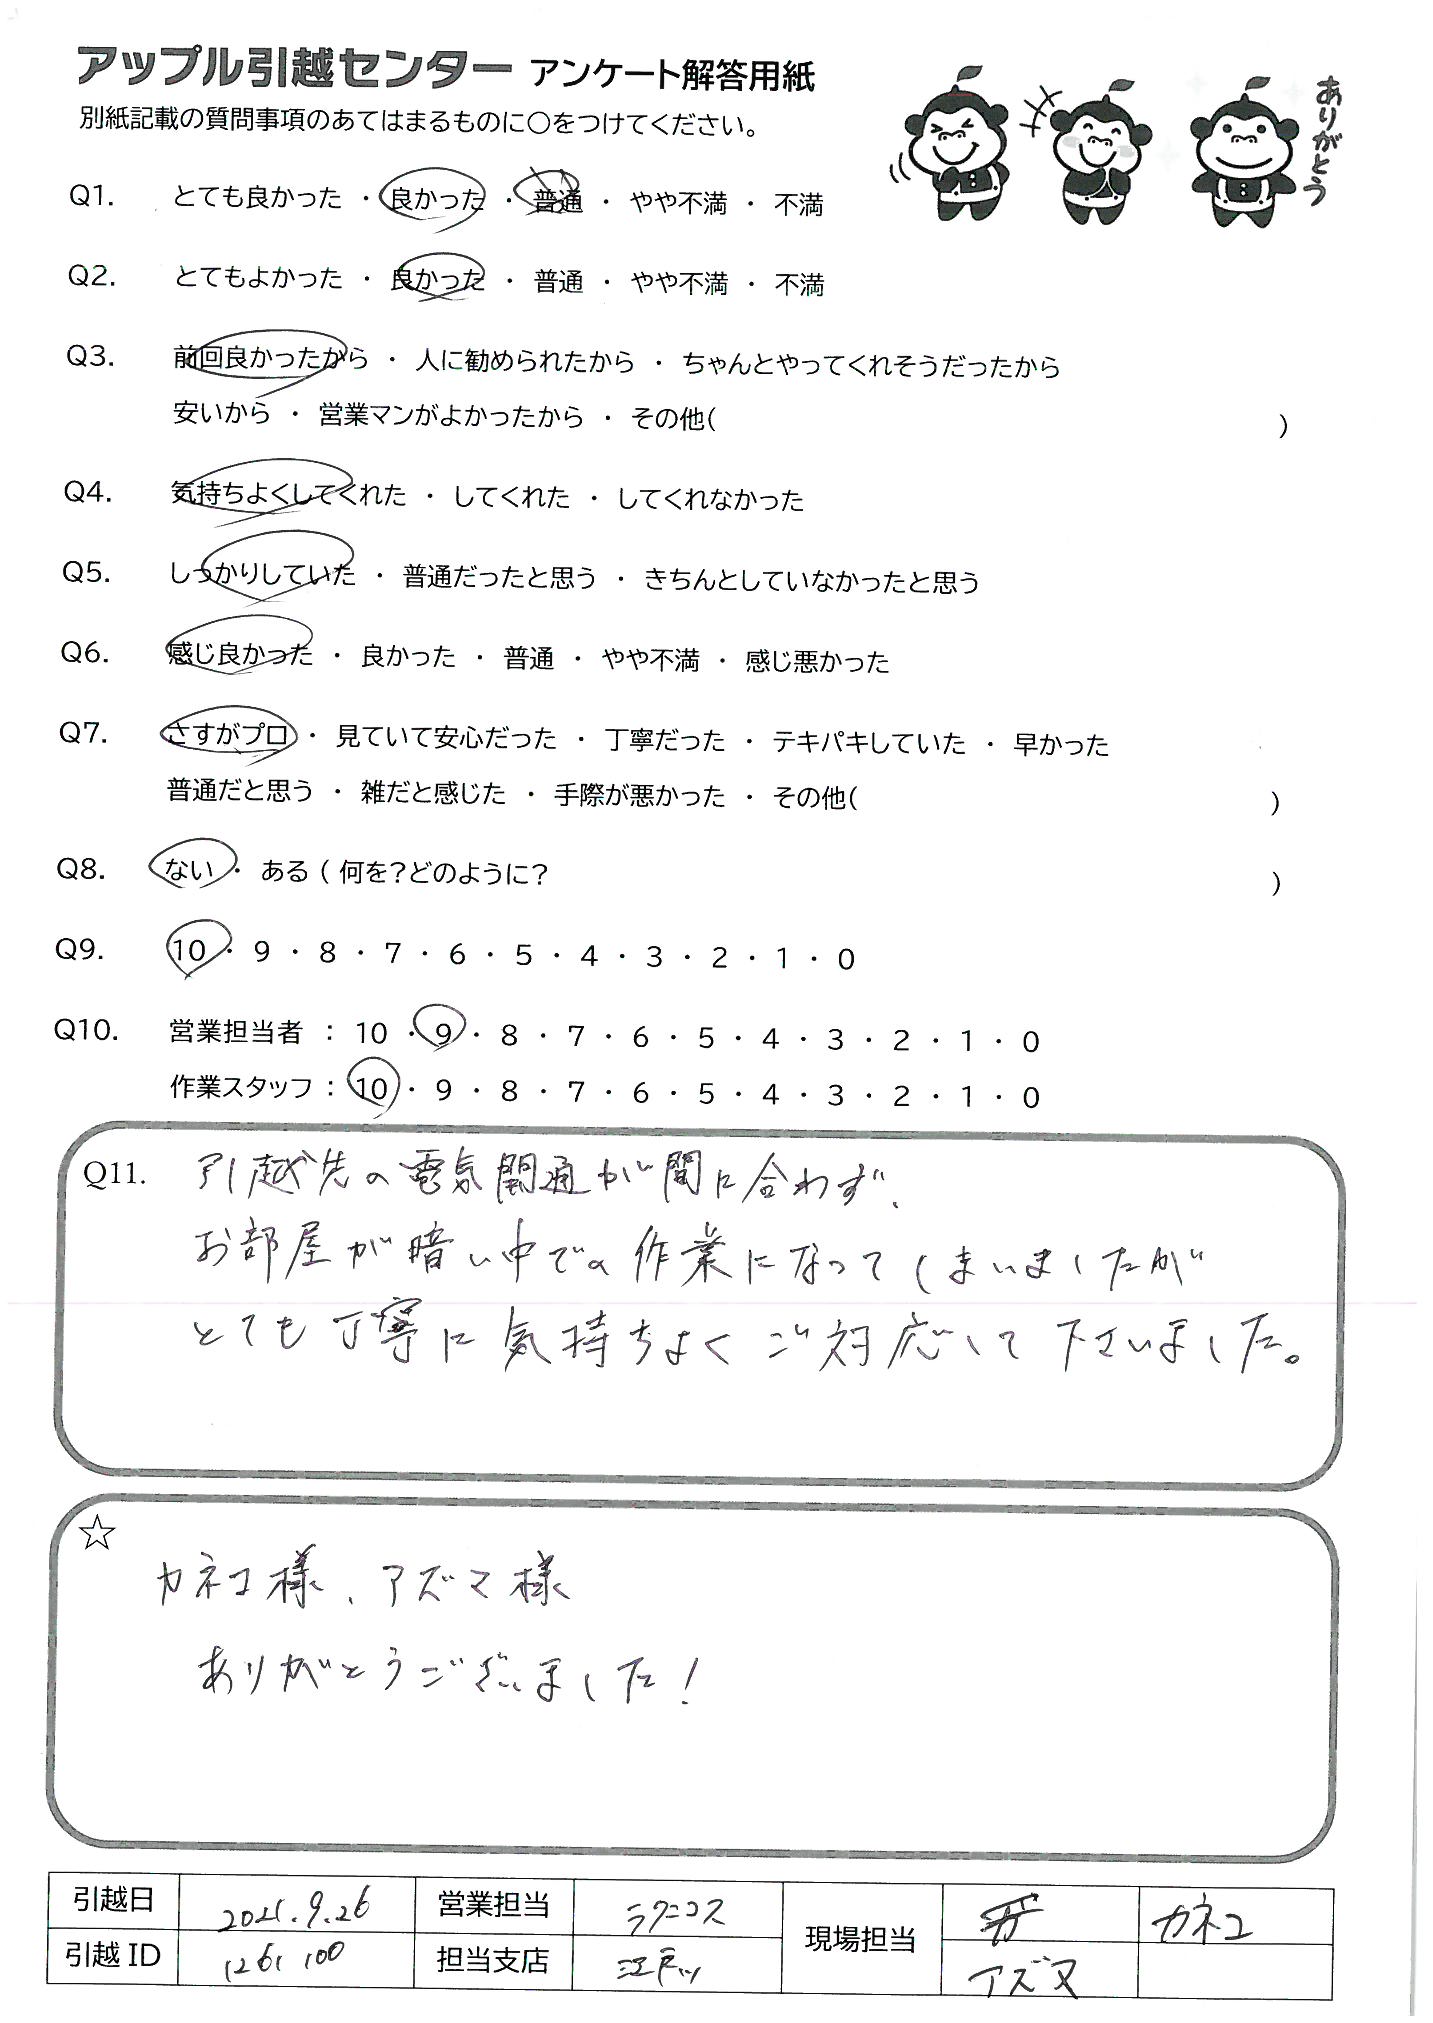 アップル引越センター アンケート解答用紙
別紙記載の質問事項のあてはまるものに○をつけてください。
ありがとう
Q1. とても良かった ・ 良かった ・ 普通 ・ やや不満 ・ 不満
Q2. とてもよかった ・ 良かった ・ 普通 ・ やや不満 ・ 不満
Q3. 前回良かったから ・ 人に勧められたから ・ ちゃんとやってくれそうだったから
安いから ・ 営業マンがよかったから ・ その他( )
Q4. 気持ちよくしてくれた ・ してくれた ・ してくれなかった
Q5. しっかりしていた ・ 普通だったと思う ・ きちんとしていなかったと思う
Q6. 感じ良かった ・ 良かった ・ 普通 ・ やや不満 ・ 感じ悪かった
Q7. さすがプロ ・ 見ていて安心だった ・ 丁寧だった ・ テキパキしていた ・ 早かった
普通だと思う ・ 雑だと感じた ・ 手際が悪かった ・ その他( )
Q8. ない ・ ある ( 何を?どのように? )
Q9. 10 ・ 9 ・ 8 ・ 7 ・ 6 ・ 5 ・ 4 ・ 3 ・ 2 ・ 1 ・ 0
Q10. 営業担当者 : 10 ・ 9 ・ 8 ・ 7 ・ 6 ・ 5 ・ 4 ・ 3 ・ 2 ・ 1 ・ 0
作業スタッフ : 10 ・ 9 ・ 8 ・ 7 ・ 6 ・ 5 ・ 4 ・ 3 ・ 2 ・ 1 ・ 0
Q11. 引越先の電気開通が間に合わず、
お部屋が暗い中での作業になってしまいましたが
とても丁寧に気持ちよくご対応して下さいました。
☆
カネコ様、アズマ様
ありがとうございました!
引越日 2021.9.26 営業担当 ラクニコス 現場担当 カネコ
引越ID 1261100 担当支店 江戸川 アズマ